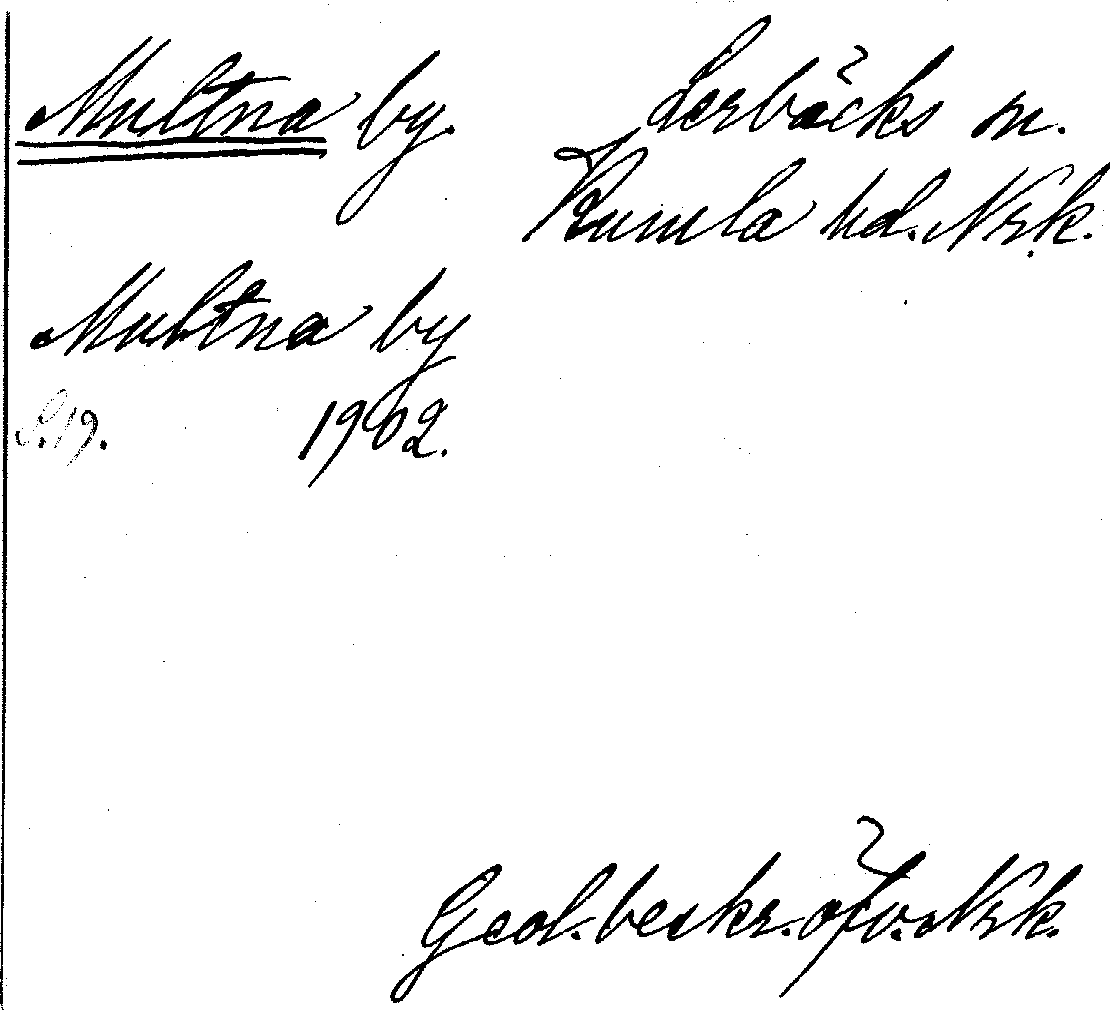 Multna by. Lerbäcks sn.
Kumla hd. Nrk.
Multna by
S.19. 1902.
Geol. beskr. öfv. Nrk.